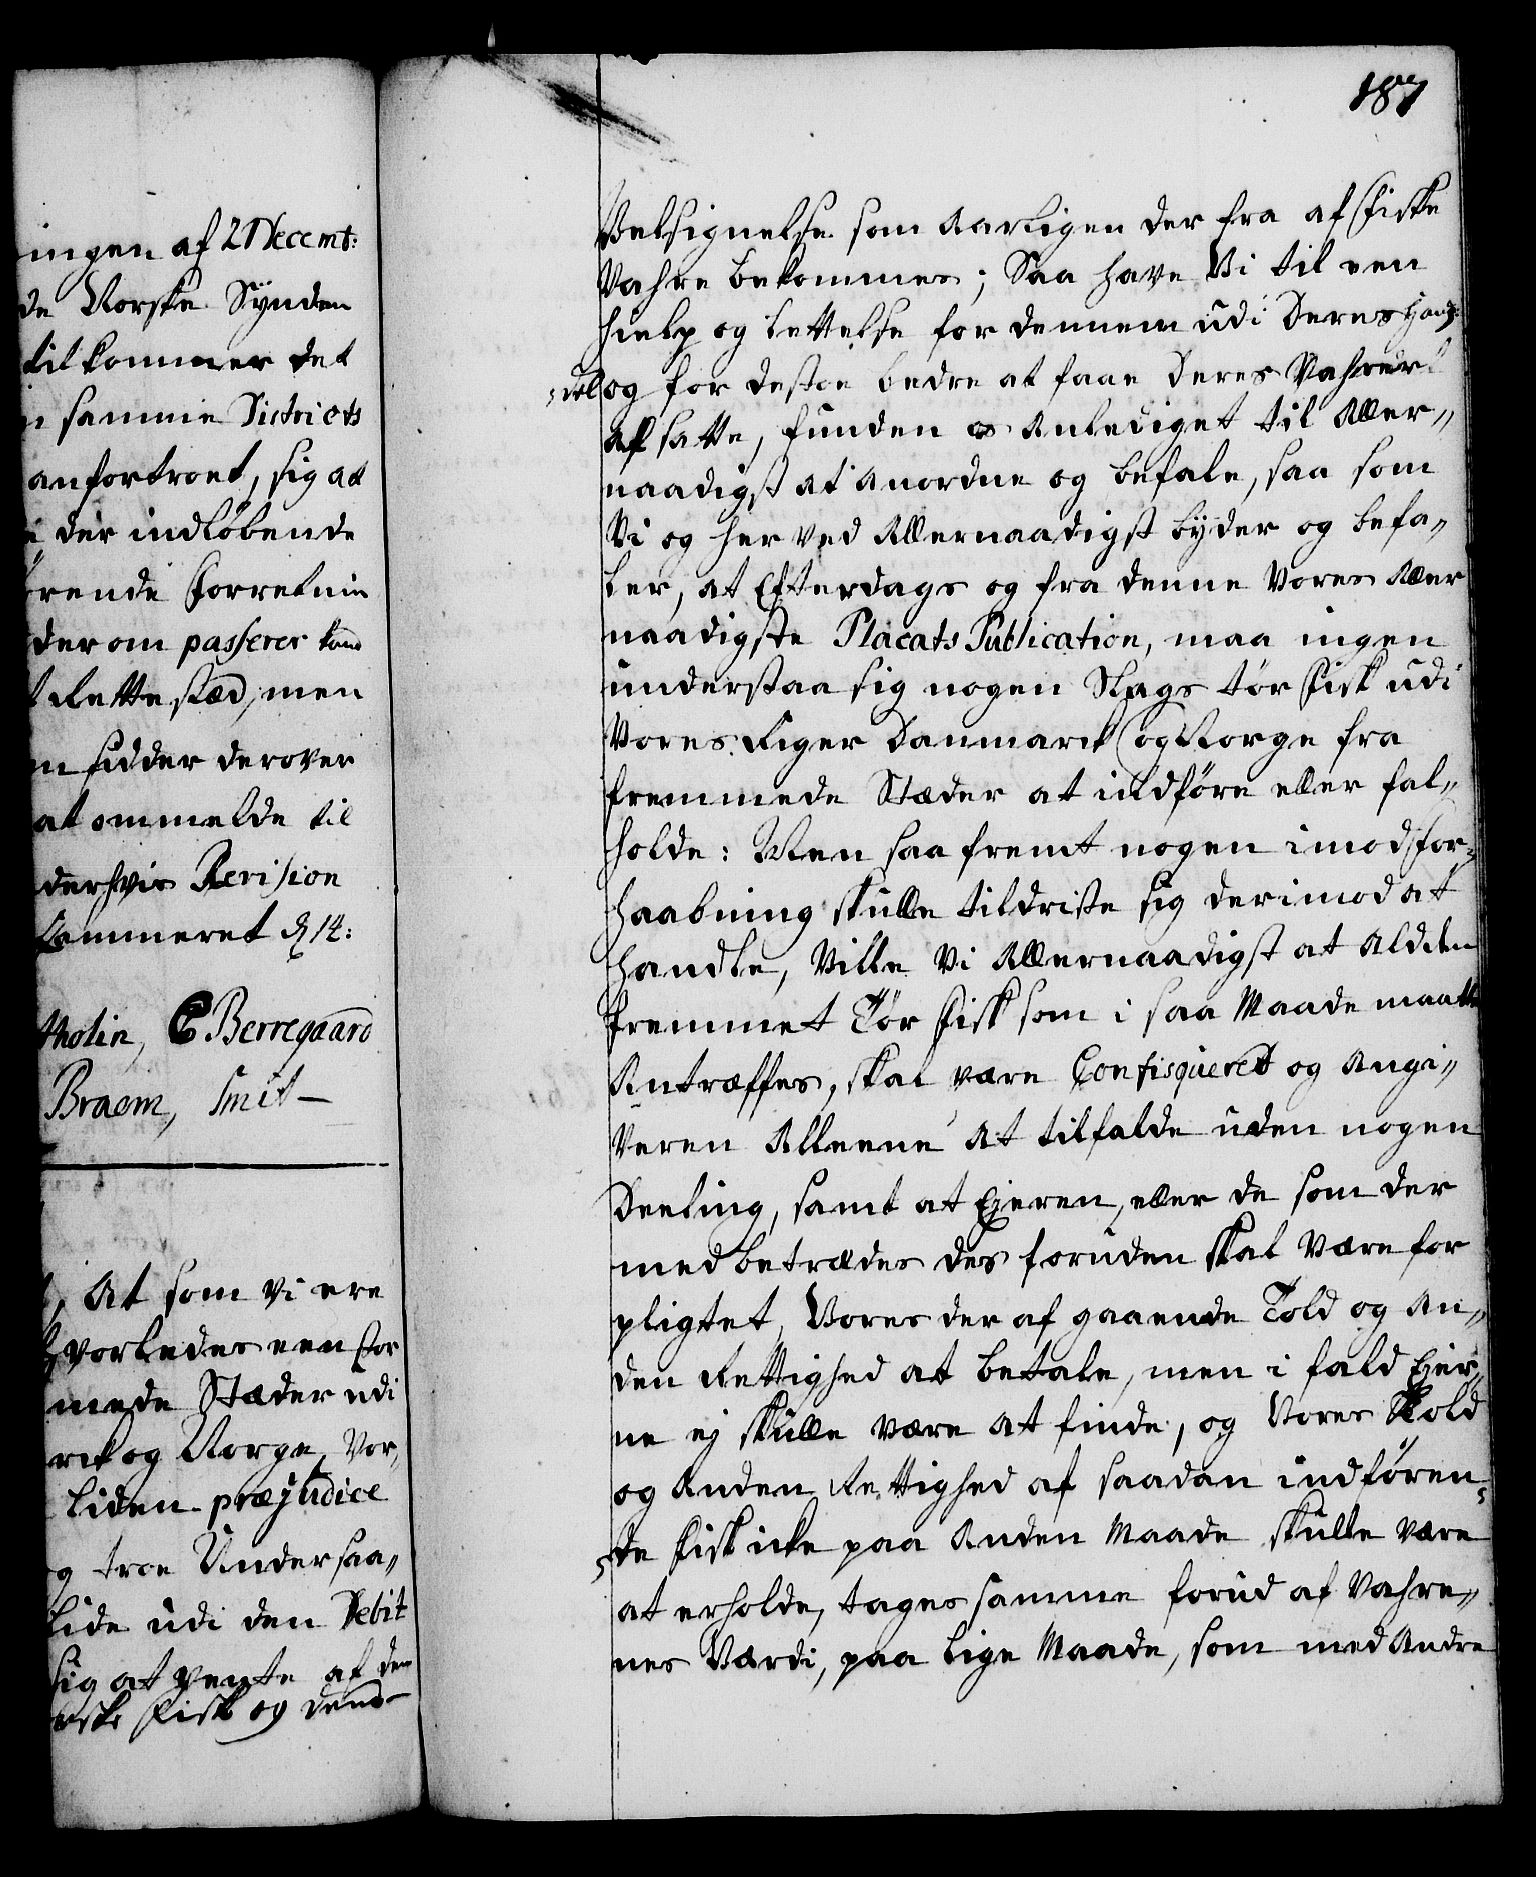 ingen af 21 Decemb:
de Norske Synden
tilkommer det
samme Districts
anfortroet, sig at
der indløbende
rende Forretnin
der om passerer kand
Rettestæd, men
sidder derover
at ommelde til
derhvis Revision
Cammeret d 14:
tholin, C Berregaard
Braem, Smit
At som Vi ere
hvorledes een For
mede Stæder udi
rck og Norge, Vor,
liden præjudice
g troe Undersaa„
lide udi den Debit
sig at vente af den
rske Fisk og dend
187
Velsignelse som aarligen der fra af Fiske
Vahre bekommes; Saa have Vi til een
hielp og lettelse for dennem udi Deres Han
del og for desto bedre at faae deres Vahrer
afsatte, funden os anlediget til Aller„
naadigst at anordne og befale, saa som
Vi og her ved Allernaadigst byder og befa„
ler, at Efterdags og fra denne Vores Aller
naadigste Placats Publication, maa ingen
understaa sig nogen Slags tör Fisk udi
Vores Riger Danmarck og Norge fra
fremmede Stæder at indföre eller fal„
holde: Men saa fremt nogen imod For„
haabning skulle tildriste sig derimod at
handle, Ville Vi Allernaadigst at ald den
fremmet Tör Fisk som i saa Maade maatte
Antræffes, skal være Confisqueret og Angi„
veren Alleene At tilfalde uden nogen
Deeling, samt at Ejeren, eller de som der
med betrædes des foruden skal være for
pligtet, Vores der af gaaende Told og An„
den Rettighed at betale, men i fald Ejer„
ne ej skulle være at finde, og Vores Told
og Anden Rettighed af saadan indfören„
de Fisk icke paa Anden Maade skulle være
at erholde, tages samme forud af Vahre„
nes Værdi, paa lige Maade, som med Andre